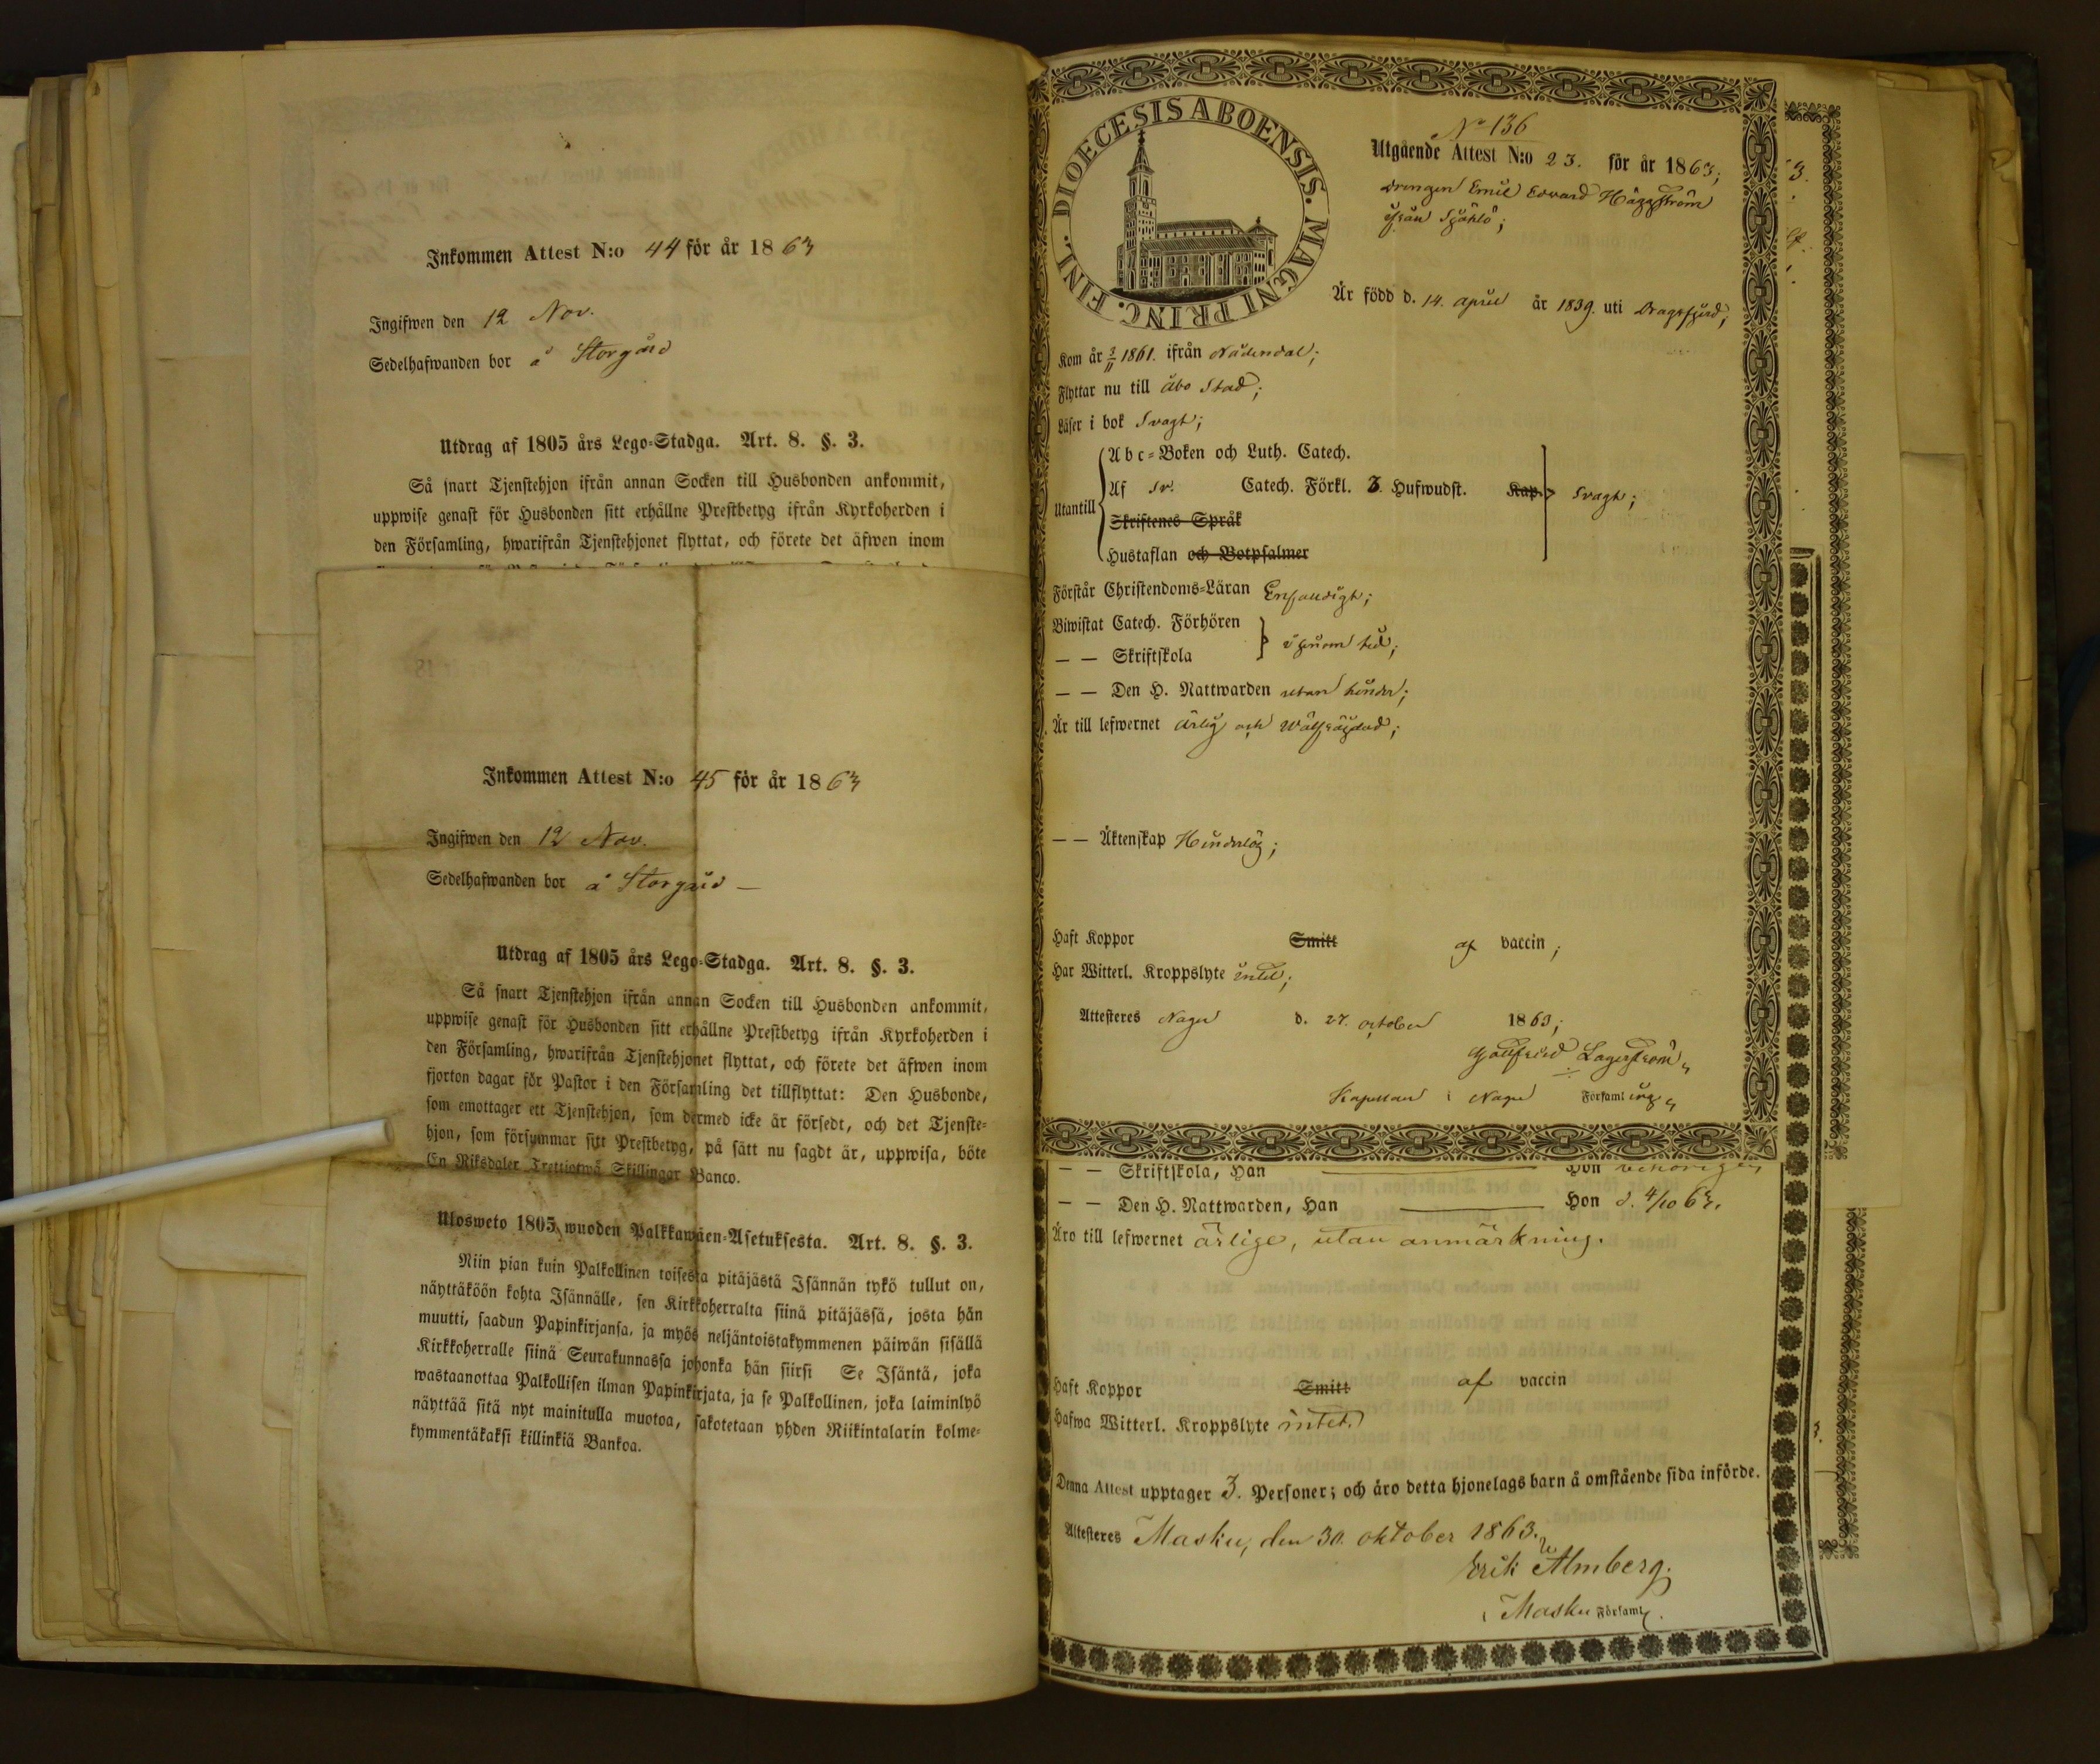 Inkommen Attest N:o 44 för år 1863
Ingifwen den 12 Nov.
Sedelhafwanden bor å Storgård
Utdrag af 1805 års Lego-Stadga. Art. 8. §. 3.
Så snart Tjenstehjon ifrån annan Socken till Husbonden ankommit,
uppwise genast för Husbonden sitt erhållne Prestbetyg ifrån Kyrkoherden i
den Församling, hwarifrån Tjenstehjonet flyttat, och förete det äfwen inom
Inkommen Attest N:o 45 för år 1863
Ingifwen den 12 Nov.
Sedelhafwanden bor å Storgård —
Utdrag af 1805 års Lego-Stadga. Art. 8. §. 3.
Så snart Tjenstehjon ifrån annan Socken till Husbonden ankommit,
uppwise genast för Husbonden sitt erhållne Prestbetyg ifrån Kyrkoherden i
den Församling, hwarifrån Tjenstehjonet flyttat, och förete det äfwen inom
fjorton dagar för Pastor i den Församling det tillflyttat: Den Husbonde,
som emottager ett Tjenstehjon, som dermed icke är försedt, och det Tjenste-
hjon, som försummar sitt Prestbetyg, på sätt nu sagdt är, uppwisa, böte
En Riksdaler Trettiotwå Skillingar Banco.
Ulosweto 1805 wuoden Palkkawäen-Asetuksesta. Art. 8. §. 3.
Niin pian kuin Palkollinen toisesta pitäjästä Isännän tykö tullut on,
näyttäköön kohta Isännälle, sen Kirkkoherralta siinä pitäjässä, josta hän
muutti, saadun Papinkirjansa, ja myös neljäntoistakymmenen päiwän sisällä
Kirkkoherralle siinä Seurakunnassa johonka hän siirsi Se Isäntä, joka
wastaanottaa Palkollisen ilman Papinkirjata, ja se Palkollinen, joka laiminlyö
näyttää sitä nyt mainitulla muotoa, sakotetaan yhden Riikintalarin kolme-
kymmentäkaksi killinkiä Bankoa.
DIOECESIS ABOENSIS. MAGNI PRINC. FINL.
No 136
Utgående Attest N:o 23. för år 1863;
Drengen Emil Edvard Häggström
ifrån Själö;
Är född d. 14. April år 1839. uti Dragsfjärd;
Kom år 3/11 1861. ifrån Nådendal;
Flyttar nu till Åbo Stad;
Läser i bok Svagt;
Utantill
Abc-Boken och Luth. Catech.
Af Sv. Catech. Förkl. 3. Hufwudst. Kap. Svagt;
Skriftenes Språk
Hustaflan och Botpsalmer
Förstår Christendoms-Läran Enfaldigt;
Biwistat Catech. Förhören
— — Skriftskola
i senom tid;
— — Den H. Nattwarden utan hinder;
Är till lefwernet Ärlig och Wälfrägdad;
— — Äktenskap Hinderlög;
Haft Koppor Smitt af vaccin;
Har Witterl. Kroppslyte intet;
Attesteres Nagu d. 27. october 1863;
Gottfried Lagerström
Kapellan i Nagu Församling
— — Skriftskola, Han — Hon behörigen
— — Den H. Nattwarden, Han — Hon d. 4/10 63.
Äro till lefwernet ärlige, utan anmärkning.
Haft Koppor Smitt af vaccin
Hafwa Witterl. Kroppslyte intet.
Denna Attest upptager 3. Personer; och äro detta hjonelags barn å omstående sida införde.
Attesteres Masku, den 30. oktober 1863.
Erik Almberg.
i Masku Församl.